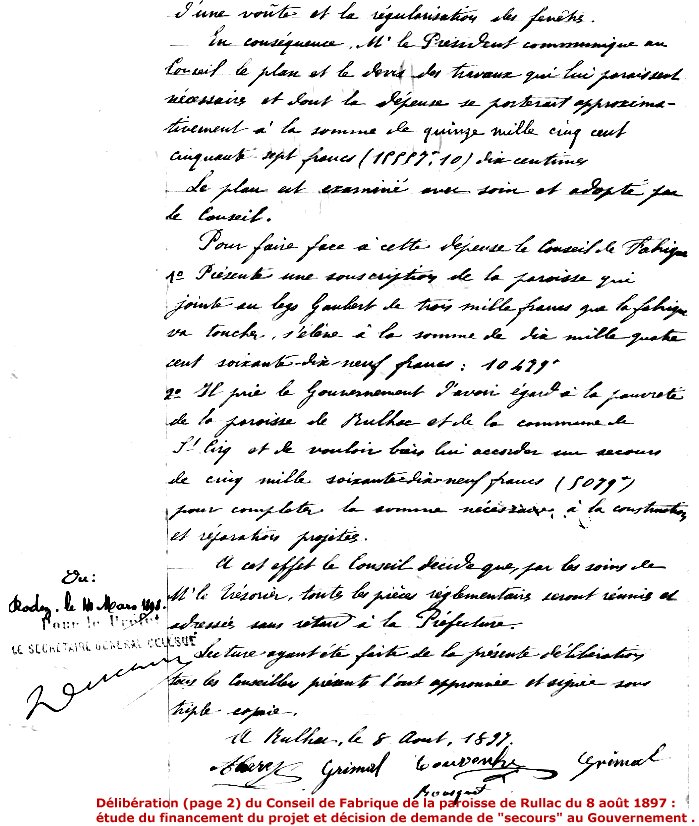 d'une voûte et la régularisation des fenêtres.
En conséquence, Mr le Président communique au
Conseil le plan et le devis des travaux qui lui paraissent
nécessaires et dont la dépense se porterait approxima-
tivement à la somme de quinze mille cinq cent
cinquante sept francs (15557f,10) dix centimes
Le plan est examiné avec soin et adopté par
le Conseil.
Pour faire face à cette dépense le Conseil de Fabrique
1o Présente une souscription de la paroisse qui
jointe au legs Gaubert de trois mille francs que la fabrique
va toucher, s'élève à la somme de dix mille quatre
cent soixante-dix-neuf francs : 10479f
2o Il prie le Gouvernement d'avoir égard à la pauvreté
de la paroisse de Rulhac et de la commune de
St Cirq et de vouloir bien lui accorder un secours
de cinq mille soixante-dix-neuf francs (5079f)
pour compléter la somme nécessaire à la construction
et réparations projetées.
A cet effet le Conseil décide que, par les soins de
Mr le Trésorier, toutes les pièces réglementaires seront réunies et
adressées sans retard à la Préfecture.
Lecture ayant été faite de la présente délibération
tous les Conseillers présents l'ont approuvée et signée sous
triple copie.
A Rulhac, le 8 Aout, 1897.
Grimal Grimal
Bousquet
Vu:
Rodez, le Mars
Pour le Préfet
LE SECRÉTAIRE GÉNÉRAL DÉLÉGUÉ
Délibération (page 2) du Conseil de Fabrique de la paroisse de Rullac du 8 août 1897 :
étude du financement du projet et décision de demande de "secours" au Gouvernement .